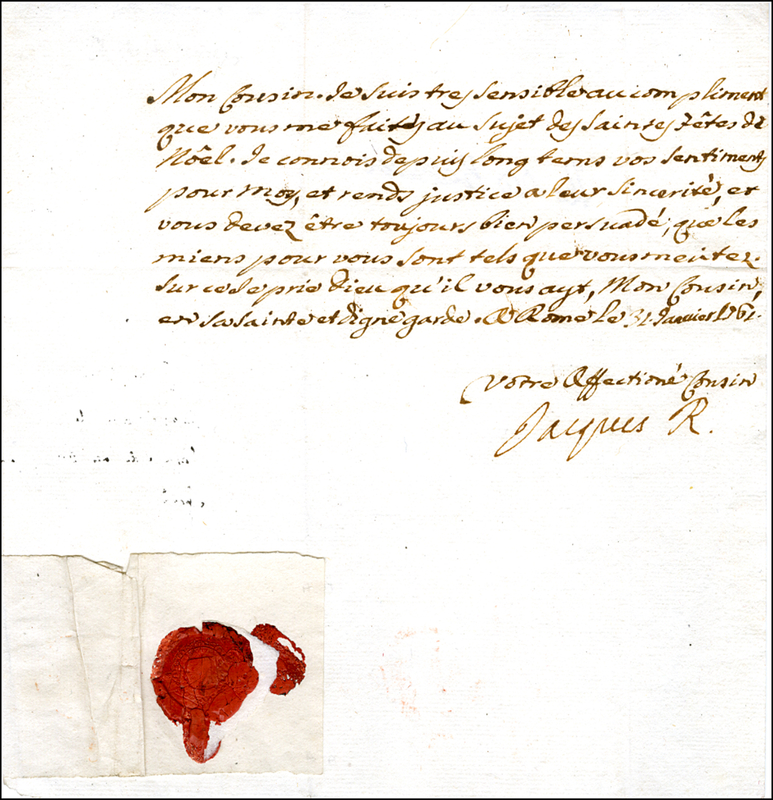 Mon Cousin. Je suis tres sensible au compliment
que vous me faites au sujet des saintes Fêtes de
Nôel. Je connois depuis long tems vos sentiments
pour moy, et rends justice a leur sincerité, et
vous devez être toujours bien persuadé, que les
miens pour vous sont tels que vous meritez.
Sur ce Je prie Dieu qu'il vous ayt, Mon Cousin,
en sa sainte et digne garde. A Rome le 31. Janvier 1761.
Votre Affectioné Cousin
Jacques R.